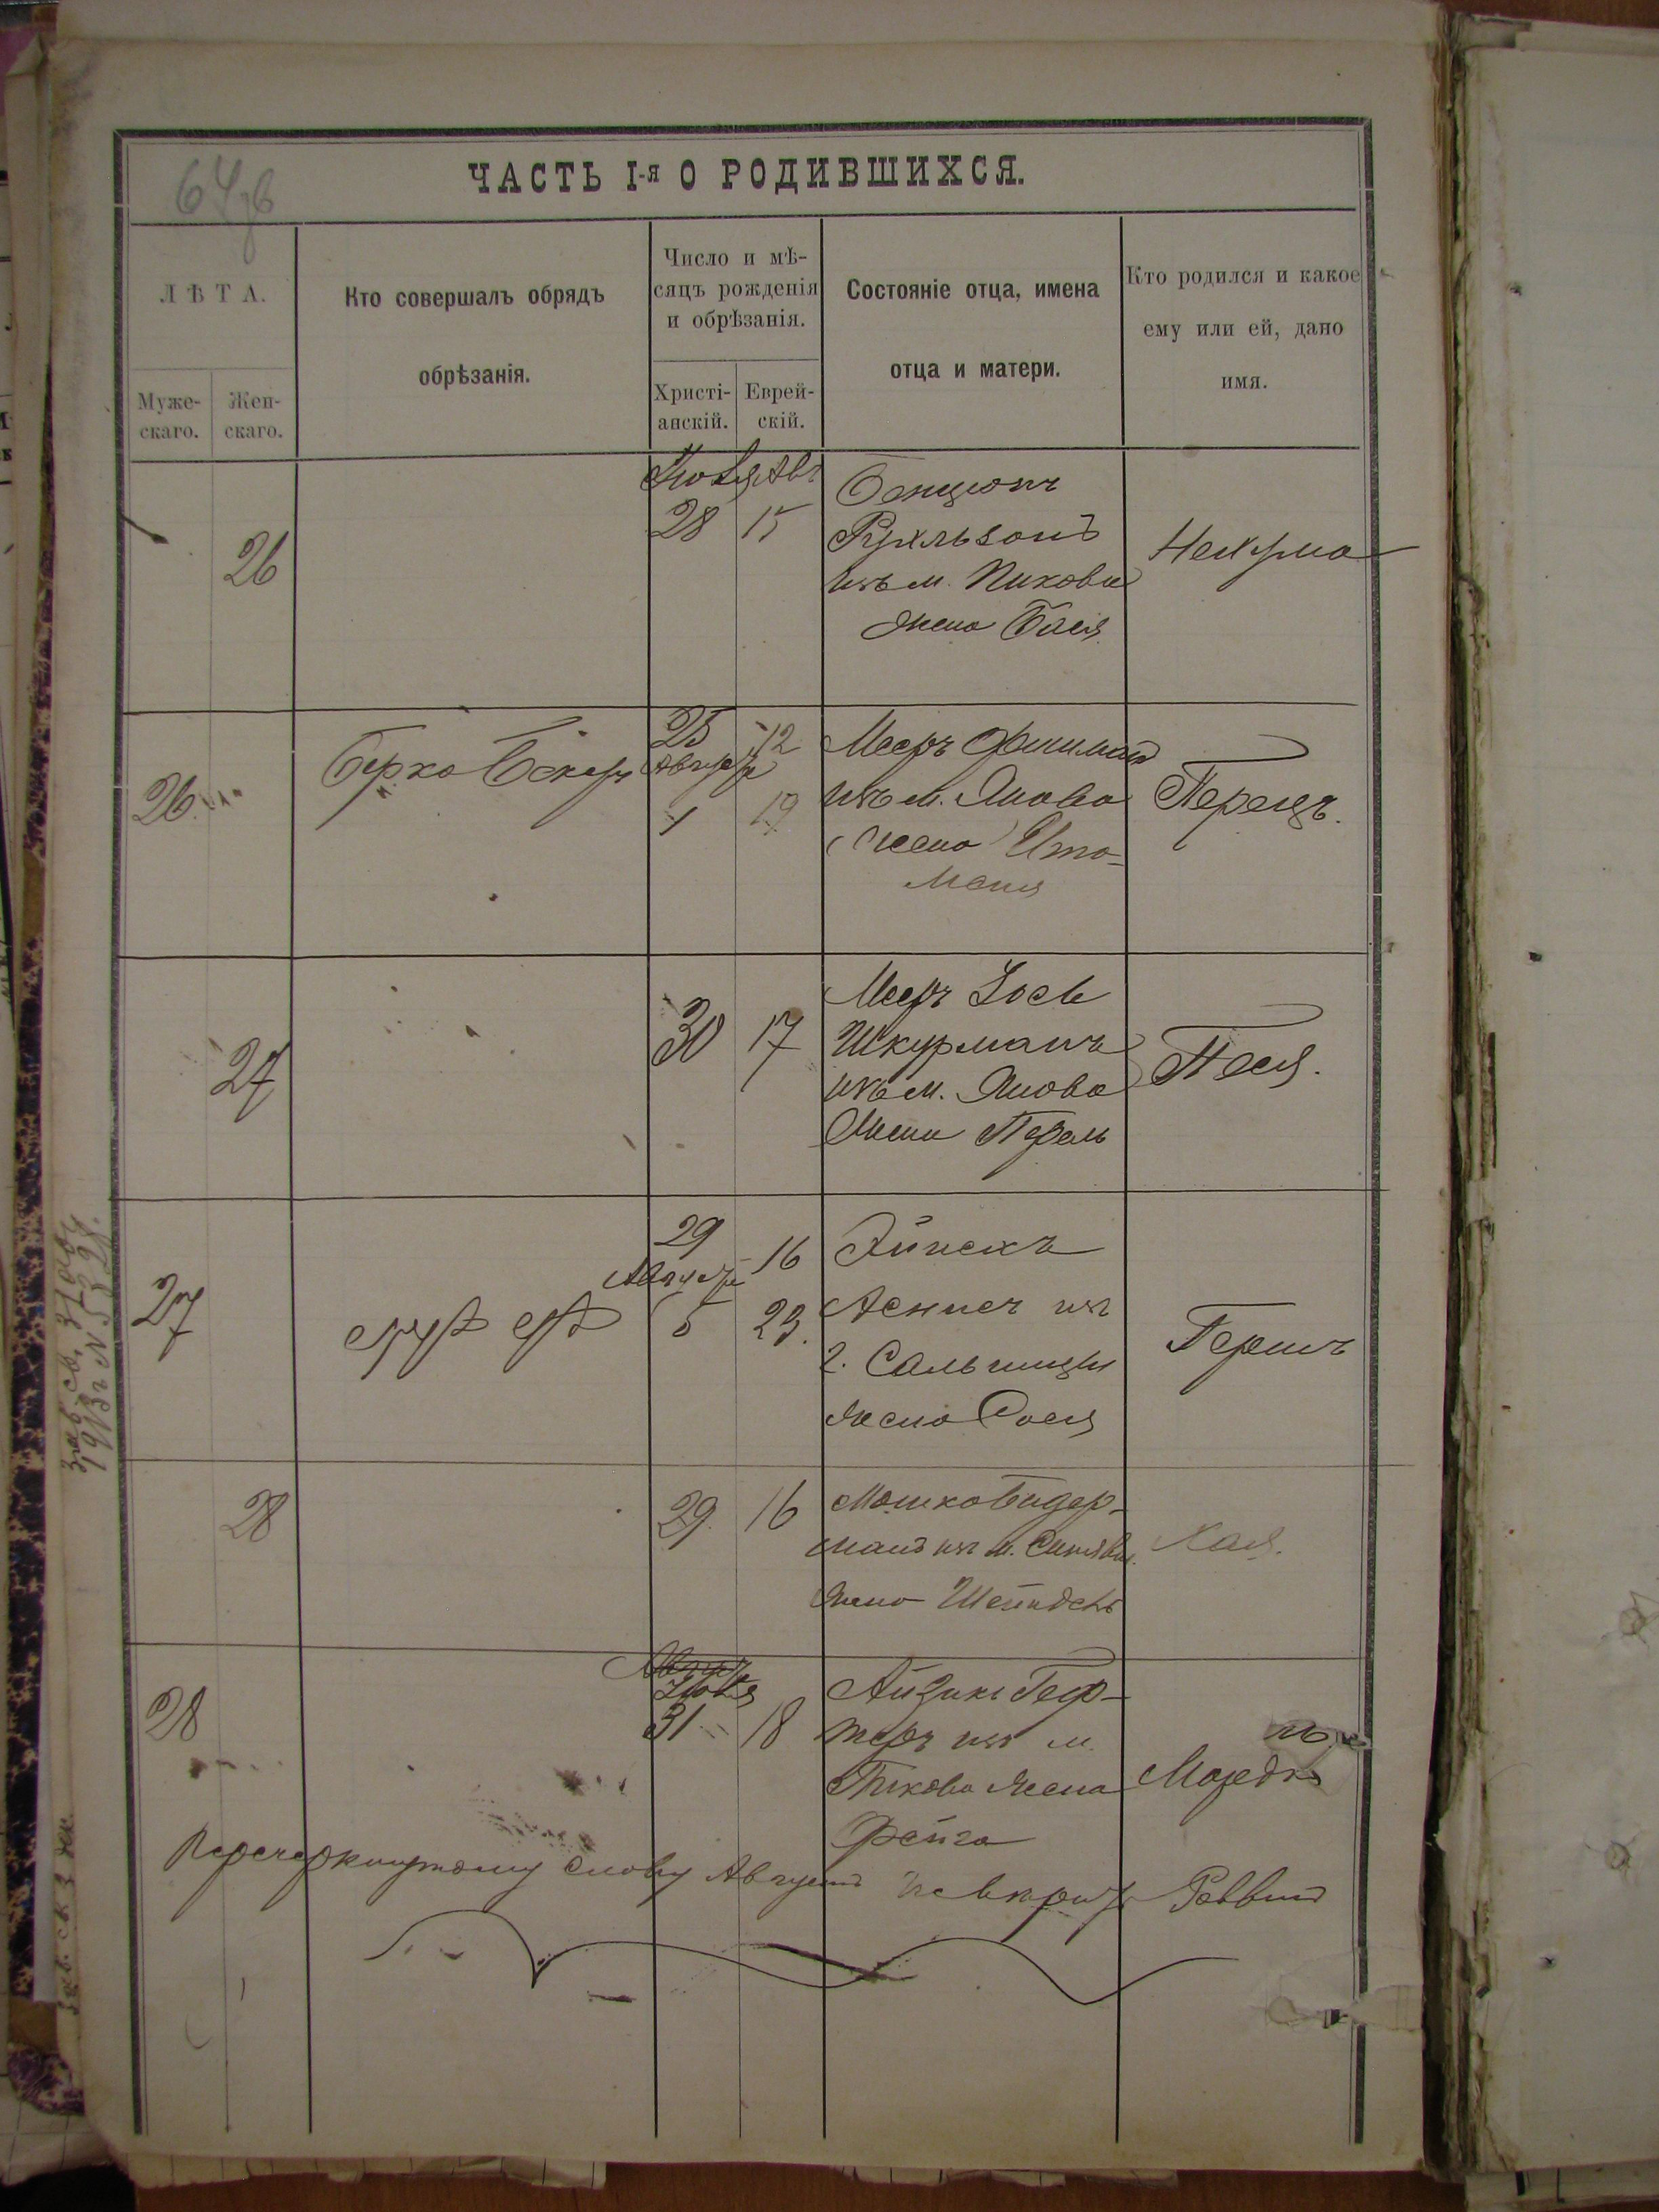 ЧАСТЬ I-я О РОДИВШИХСЯ.
ЛѢТА.
Муже-
скаго.
Жен-
скаго.
Кто совершалъ обрядъ
обрѣзанія.
Число и мѣ-
сяцъ рожденія
и обрѣзанія.
Христі-
анскій.
Еврей-
скій.
Состояніе отца, имена
отца и матери.
Кто родился и какое
ему или ей, дано
имя.
26
Іюля Авъ
28 15
Бенціонъ
Рухльзонъ
изъ м. Пикова
жена Бася
Нехума
26
Берко Бекеръ
25 12
Августа
1 19
Мееръ Фишманъ
изъ м. Янова
жена Ита-
Маня
Перецъ.
27
30 17
Меръ Зось
Шкурманъ
изъ м. Янова
жена Перель
Песя.
27
29 16
Августа
5 23.
Айзикъ
изъ
г. Сальницы
жена Рося
Гершъ
28
29. 16
Мошко Бидер-
манъ изъ м. Синявы.
жена Шейндель
Хая.
28
Авгус
Іюля
31 18
Айзикъ Гер-
теръ изъ м.
Пикова жена
Фейга
Мордко
Перечеркнутому слову Августъ не верить Раввинъ
зав. св. 31 авг.
1913 г № 5328.